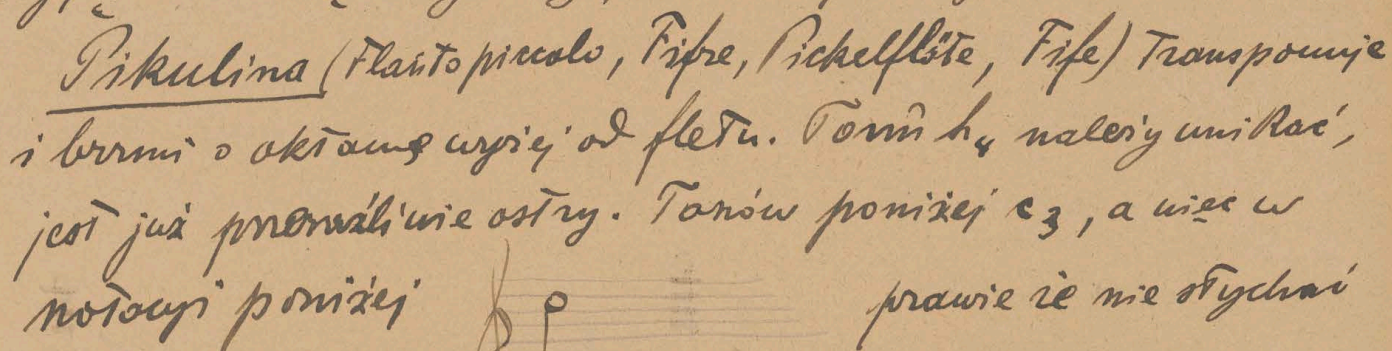 Pikulina (Flauto piccolo, Fifre, Pickelflöte, Fife) Transponuje
i brzmi o oktawę wyżej od fletu. Tonu h4 należy unikać,
jest już przeraźliwie ostry. Tonów poniżej c3, a więc w
notacji poniżej prawie że nie słychać